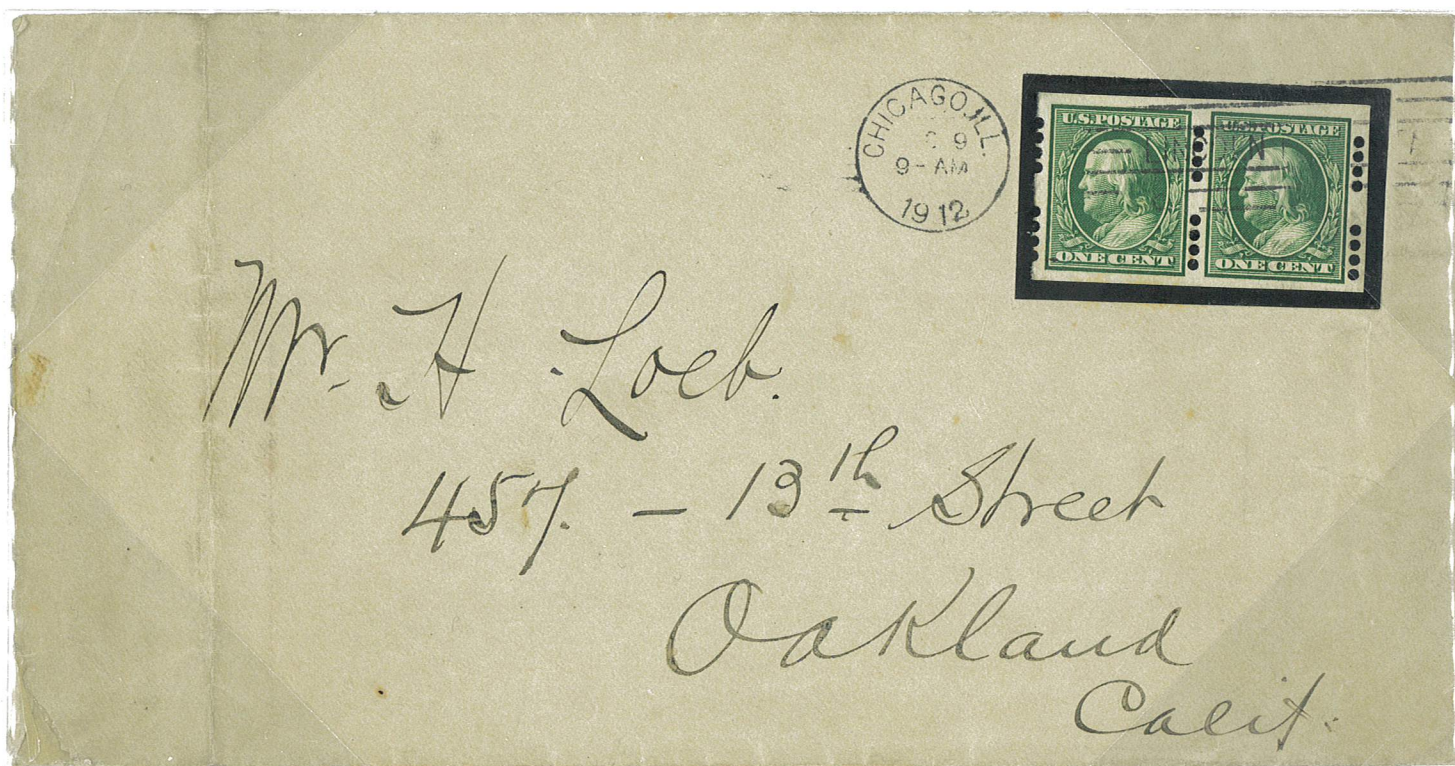 CHICAGO, ILL.
9
9-AM
1912
U.S. POSTAGE
ONE CENT
U.S. POSTAGE
ONE CENT
Mr. H. Loeb.
457. - 13th Street
Oakland
Calif.